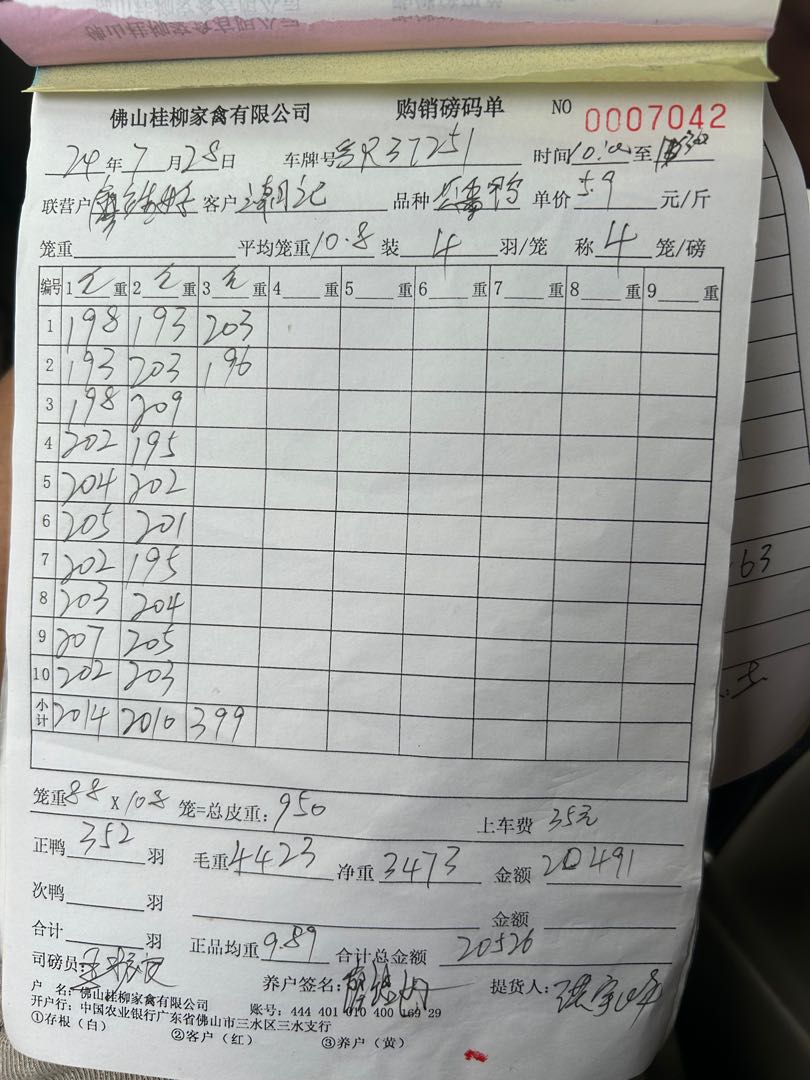 佛山桂柳家禽有限公司 购销磅码单 NO 0007042
24年7月28日 车牌号 37251 时间10:00至
联营户 客户 潮记 品种 鸭 单价5.9元/斤
笼重 平均笼重10.8 装4羽/笼 称4笼/磅
编号 1 毛 重 2 毛 重 3 毛 重 4 重 5 重 6 重 7 重 8 重 9 重
1 198 193 203
2 193 203 196
3 198 209
4 202 195
5 204 202
6 205 201
7 202 195
8 203 204
9 207 205
10 202 203
小计 2014 2010 399
笼重88 X 10.8 笼=总皮重:950 上车费 35元
正鸭352羽 毛重4423 净重3473 金额20491
次鸭 羽 金额
合计 羽 正品均重9.89 合计总金额 20526
司磅员: 养户签名: 提货人:
户 名:佛山桂柳家禽有限公司
开户行:中国农业银行广东省佛山市三水区三水支行 账号:444 401 010 400 169 29
①存根(白) ②客户(红) ③养户(黄)
63